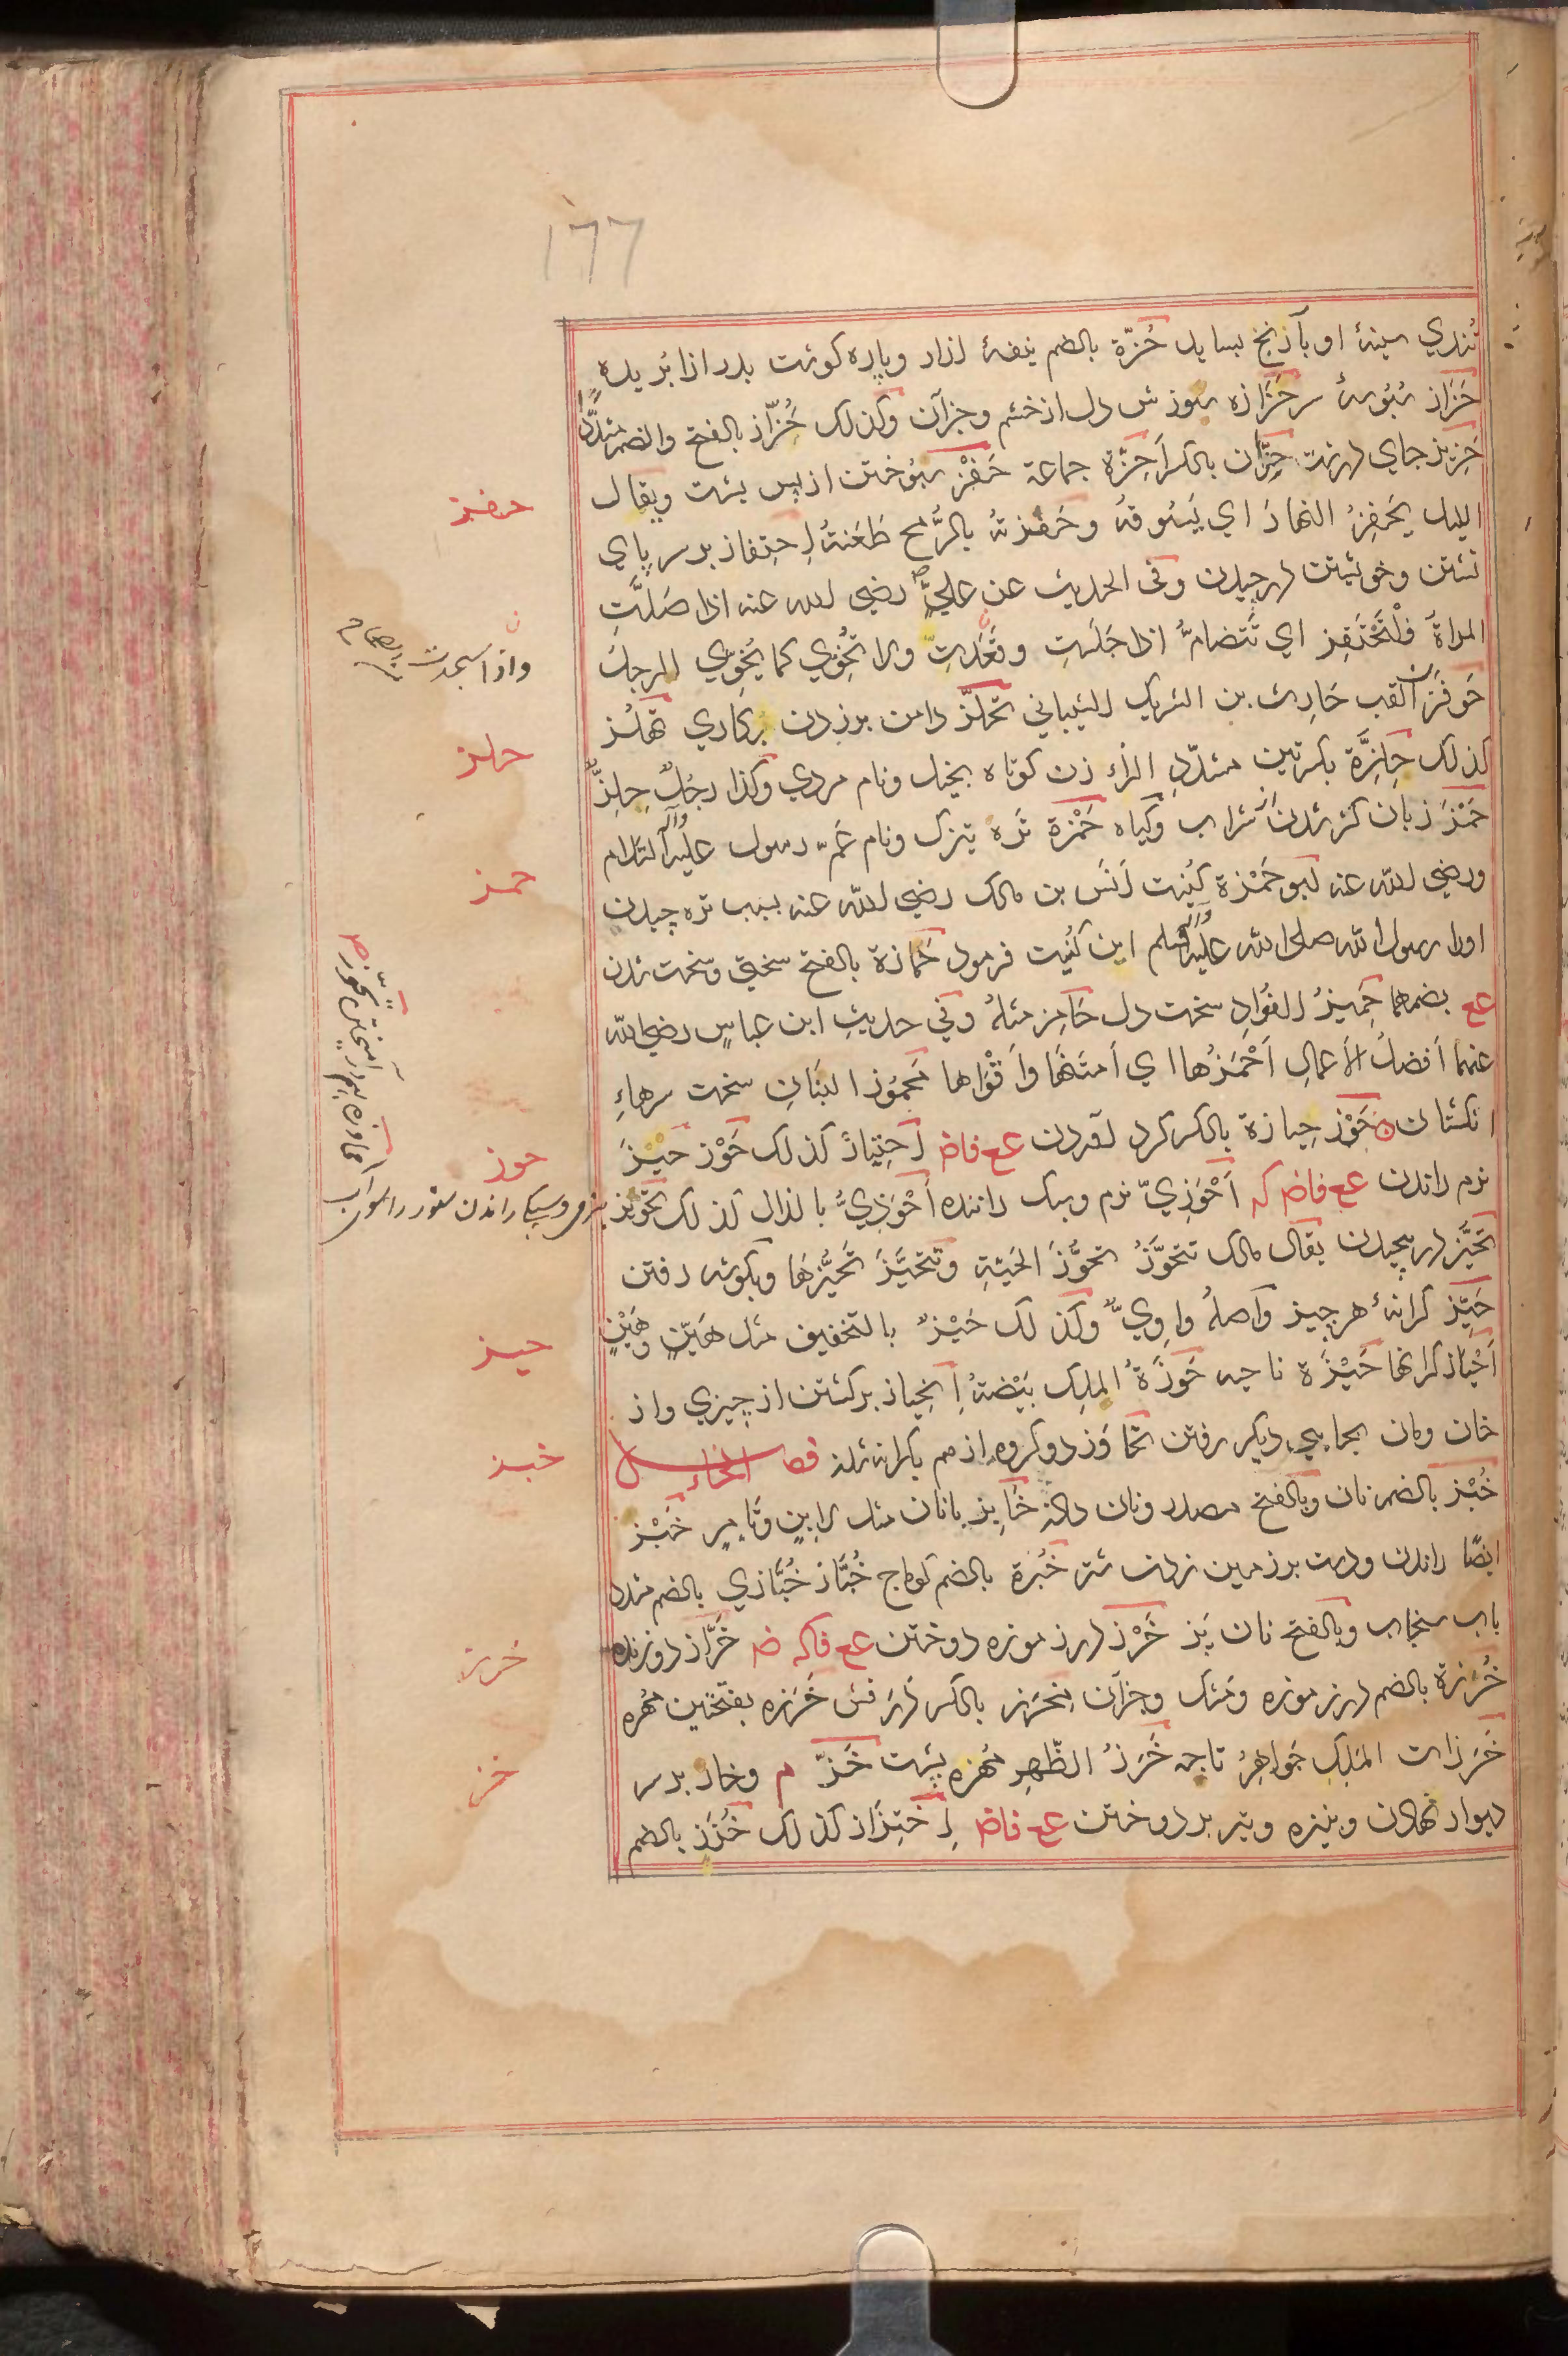 ١٦٦
تُندي سینهٔ او بآرنج بساید حُزّة بالضم نیفهٔ ازار وپاره کوشت بدرازا بُریده
حَزَاز سُبُوسهٔ سر حَزَازه سوزش دل از خشم وجزآن وکذلک حُزّاز بالفتح والضم مشدّدًا
حَزِیز جاي درشت حِزّان بالکسر اَحِزَّة جماعة حَفْز سپُوختن از پس پشت ویقال
اللیل یَحفِزُ النهارَ اي یَسُوقهُ وحَفَزتهُ بالرُّمح طَعَنتُهُ اِحتِفاز بر سر پاي
نشستن وخویشتن درچیدن وفی الحدیث عن علیٍّ رضی الله عنه اذا صَلَّتِ
المراة فَلْتَحْتَفِز اي تَتَضامُّ اذا جَلَسَت وقَعَدتّ ولا تُخَوِّي کما یُخَوِّي الرجل
حَوفَزَان لقب حَارِث بن الشریک الشیباني تحلّز دامن برزدن بَرکاري تهلُّز
کذلک حِلِزَّة بکسرتین مشدّدِ الزاء زن کوتاه بخیل ونام مردي وکذا رجُلٌ حِلِزٌّ
حَمْز زبان کز شدن از شراب وکیاه حَمْزة تَره تیزک ونام عَمّ رسول علیه وآله السّلام
ورضي الله عنه ابو حَمْزة کُنیت اَنَس بن مالک رضي الله عنه بسبب تره چیدن
اورا رسول الله صلی الله علیه وآله وسلم این کُنیت فرمود حَمازة بالفتح سختی وسخت شدن
عع بضمهما حَمِیزُ الفُوادِ سخت دل حَامِز مثلُهُ وفي حدیثِ ابن عباسٍ رضي الله
عنهما اَفضلُ الاَعمالِ اَحْمَزُها اي اَمتَنُها وَاَقْوٰاها مَحمُوز البَنَانِ سخت سرهاءِ
انکشتان حَوْز حِیازة بالکسر کرد آوردن عع فاض اِحتِیاز کذلک حَوْز حَیْز
نرم راندن عع فاض که اَحْوَزِيّ نرم وسبک راننده اَحْوَذِيُّ بالذال کذلک تحویز
تحَیُّز درپیچیدن یقال مالک تتحوَّزُ تحوُّزَ الحَیَّةِ وتَتَحَیَّزَ تَحَیُّزَهَا وبکوشه رفتن
حَیِّز کرانهٔ هر چیز واَصلهُ واوِيٌّ وکذلک حَیْزٌ بالتخفیف مثل هَیِّنٍ وهَیْنٍ
اَحْیَاز کرانها حَیْزَة ناحیه حَوزَةُ المِلِک بَیْضَتهُ اِنحِیاز برکشتن از چیزي واز
خان ومان بجایي دیکر رفتن تَحاوُز دو کروه از هم بکرانه شدند فصل الخاء
خُبْز بالضم نان وبالفتح مصدر ونان دادن خَابِز بانان مثل لابِنٍ وتَامِرٍ خَبْز
ایضًا راندن ودست بر زمین زدن شتر خُبْزة بالضم کوماج خُبَّاز خُبَّازي بالضم مشدد
باب سنجاب وبالفتح نان پَز خَرْز درز موزه دوختن عع فاکه ض خَرَّاز دوزنده
خُرزة بالضم درز موزه ومَشک وجزآن مِخرَز بالکسر دِرَفش خَرَزه بفتحتین مُهره
خَرَزات المَلِکِ جَواهِرُ تاجه خَرَزُ الظَّهرِ مُهره پشت خَزّ م وخار بر سر
دیوار نهادن ونیزه وتیر بردوختن عع فاض اِختِزَاز کذلک خُزَز بالضم
حفز
واذا سجدت
حلز
حمز
حوز
بنرمي وسبکي راندن ستور راسوي آب
حیز
خبز
خرز
خز